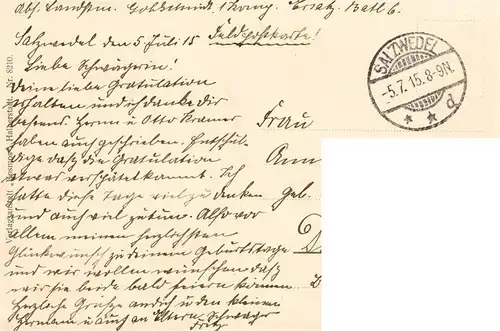 Abs. Landstm. Goldschmidt 1 Komp. Ersatz. Batl 6.
Salzwedel den 5 Juli 15 Feldpostkarte!
Liebe Schwägerin!
Deine liebe Gratulation
erhalten und ich danke dir
bestens. Herm u Otto Kramer
haben auch geschrieben. Entschul-
dige daß die Gratulation
etwas verspätet kommt. Ich
hatte diese Tage viel zu denken
und auch viel zu tun. Also vor
allem meinen herzlichsten
Glückwunsch zu deinem Geburtstage
und wir wollen wünschen daß
wir sie beide bald feiern können.
Herzliche Grüße an dich u den kleinen
Hermann u auch an Eltern. Schwager
Fritz
Frau
Ann
Geb.
SALZWEDEL
-5.7.15.8-9N.
* * d
Verlagsanstalt Halberstadt. Nr. 8210.